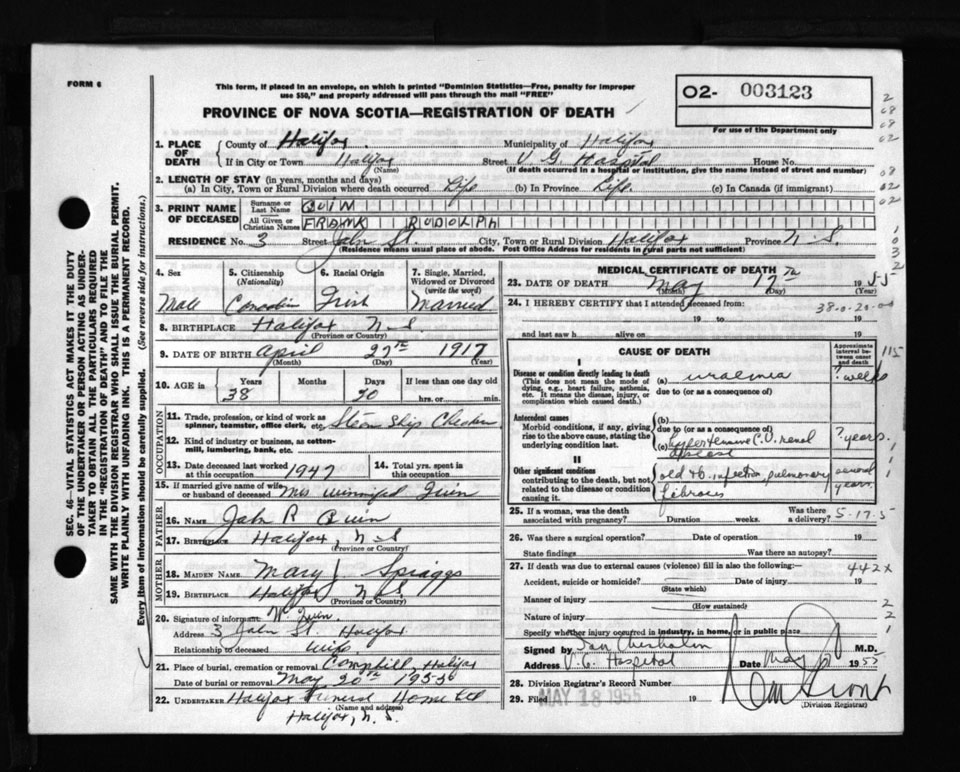 FORM 6
This form, if placed in an envelope, on which is printed "Dominion Statistics—Free, penalty for improper
use $50," and properly addressed will pass through the mail "FREE"
PROVINCE OF NOVA SCOTIA—REGISTRATION OF DEATH
02- 003123
For use of the Department only
1. PLACE OF DEATH
County of Halifax. Municipality of Halifax
If in City or Town Halifax Street V. G. Hospital House No.
(Name) (If death occurred in a hospital or institution, give the name instead of street and number)
2. LENGTH OF STAY (in years, months and days)
(a) In City, Town or Rural Division where death occurred Life (b) In Province Life. (c) In Canada (if immigrant)
3. PRINT NAME OF DECEASED
Surname or Last Name QUIN
All Given or Christian Names FRANK RUDOLPH
RESIDENCE No. 3 Street John St. City, Town or Rural Division Halifax Province N-S.
(Residence means usual place of abode. Post Office Address for residents in rural parts not sufficient)
4. Sex Male
5. Citizenship (Nationality) Canadian
6. Racial Origin Irish
7. Single, Married, Widowed or Divorced (write the word) Married
8. BIRTHPLACE Halifax N-S
(Province or Country)
9. DATE OF BIRTH April 27th 1917
(Month) (Day) (Year)
10. AGE in Years Months Days If less than one day old
38 20 hrs. or min.
OCCUPATION
11. Trade, profession, or kind of work as
spinner, teamster, office clerk, etc. Steam Ship Checker
12. Kind of industry or business, as cotton-
mill, lumbering, bank, etc.
13. Date deceased last worked
at this occupation 1947
14. Total yrs. spent in
this occupation
15. If married give name of wife
or husband of deceased Mrs Winnifred Quin
FATHER
16. NAME John R Quin
17. BIRTHPLACE Halifax, N-S
(Province or Country)
MOTHER
18. MAIDEN NAME Mary J. Spriggs
19. BIRTHPLACE Halifax N S.
(Province or Country)
20. Signature of informant W. Quin.
Address 3 John St. Halifax
Relationship to deceased Wife.
21. Place of burial, cremation or removal Camphill, Halifax
Date of burial or removal May 20th 1955
22. UNDERTAKER Halifax Funeral Home Ltd
(Name and address)
Halifax, N. S.
MEDICAL CERTIFICATE OF DEATH
23. DATE OF DEATH May 17th 1955
(Month) (Day) (Year)
24. I HEREBY CERTIFY that I attended deceased from:
19 to 19
and last saw h alive on 19
38-0-20-00
CAUSE OF DEATH
Approximate interval between onset and death
I
Disease or condition directly leading to death
(This does not mean the mode of
dying, e.g., heart failure, asthenia,
etc. It means the disease, injury, or
complication which caused death.)
(a) uraemia ? weeks
due to (or as a consequence of)
Antecedent causes
Morbid conditions, if any, giving
rise to the above cause, stating the
underlying condition last.
(b)
due to (or as a consequence of)
(c) hypertensive C.V. renal disease ? years.
II
Other significant conditions
contributing to the death, but not
related to the disease or condition
causing it.
old tb. infection, pulmonary fibrosis several years.
25. If a woman, was the death
associated with pregnancy? Duration weeks. Was there a delivery?
5-17-5
26. Was there a surgical operation? Date of operation 19
State findings Was there an autopsy?
27. If death was due to external causes (violence) fill in also the following:—
442x
Accident, suicide or homicide? Date of injury 19
(State which)
Manner of injury
(How sustained)
Nature of injury
Specify whether injury occurred in industry, in home, or in public place
Signed by Ian Chisholm M.D.
Address V.G. Hospital Date May 1955
28. Division Registrar's Record Number
29. Filed MAY 18 1955 19
(Division Registrar)
SEC. 46—VITAL STATISTICS ACT MAKES IT THE DUTY
OF THE UNDERTAKER OR PERSON ACTING AS UNDER-
TAKER TO OBTAIN ALL THE PARTICULARS REQUIRED
IN THE "REGISTRATION OF DEATH" AND TO FILE THE
SAME WITH THE DIVISION REGISTRAR WHO SHALL ISSUE THE BURIAL PERMIT.
WRITE PLAINLY WITH UNFADING INK. THIS IS A PERMANENT RECORD.
Every item of information should be carefully supplied. (See reverse side for instructions.)
2
08
08
02
08
02
02
1
0
3
2
115
1
1
1
2
2
1